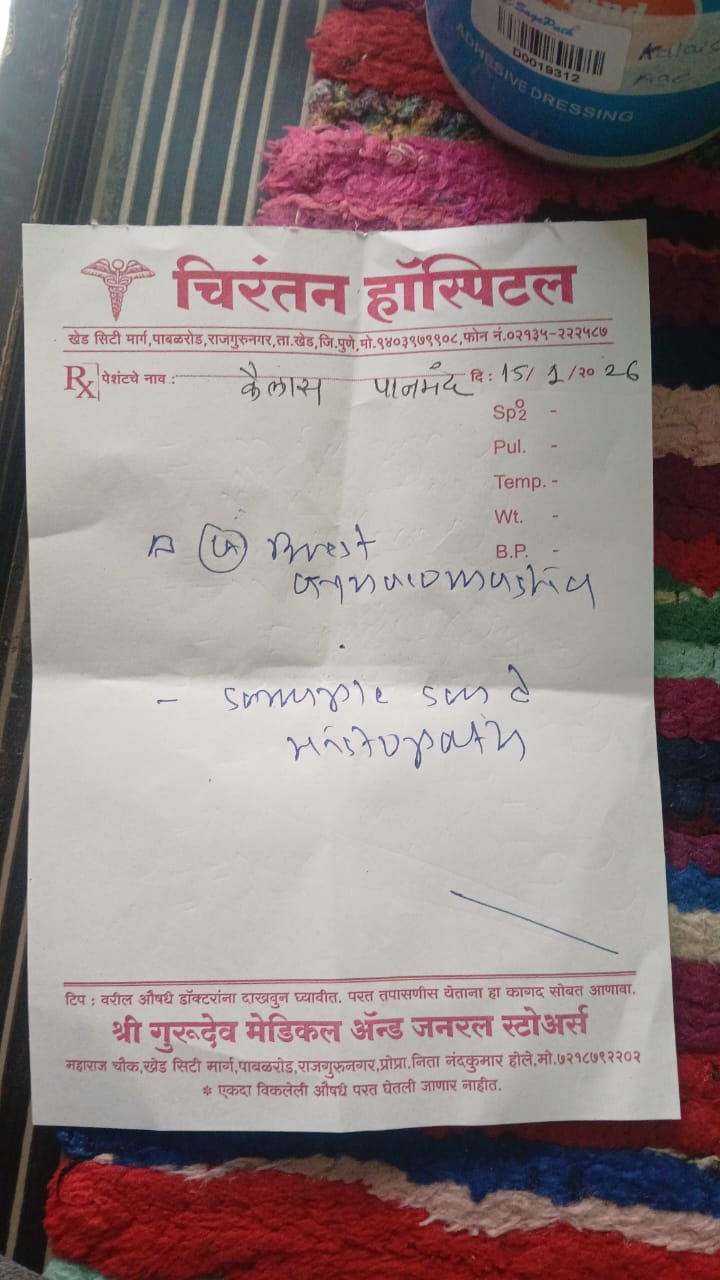 SagePath
D0019312
ADHESIVE DRESSING
चिरंतन हॉस्पिटल
खेड सिटी मार्ग,पाबळरोड,राजगुरुनगर,ता.खेड,जि.पुणे,मो.९४०३९७९९०८,फोन नं.०२१३५-२२२५८७
Rx पेशंटचे नाव : कैलास पानमंद दि : 15/ 1 /२० 26
Spo2 -
Pul. -
Temp. -
Wt. -
B.P. -
Brest
gynaecomastia
- sample send
histopath
टिप : वरील औषधे डॉक्टरांना दाखवुन घ्यावीत. परत तपासणीस येताना हा कागद सोबत आणावा.
श्री गुरूदेव मेडिकल ॲन्ड जनरल स्टोअर्स
महाराज चौक,खेड सिटी मार्ग,पाबळरोड,राजगुरुनगर,प्रोप्रा.निता नंदकुमार होले,मो.७२१८७९२२०२
* एकदा विकलेली औषधे परत घेतली जाणार नाहीत.